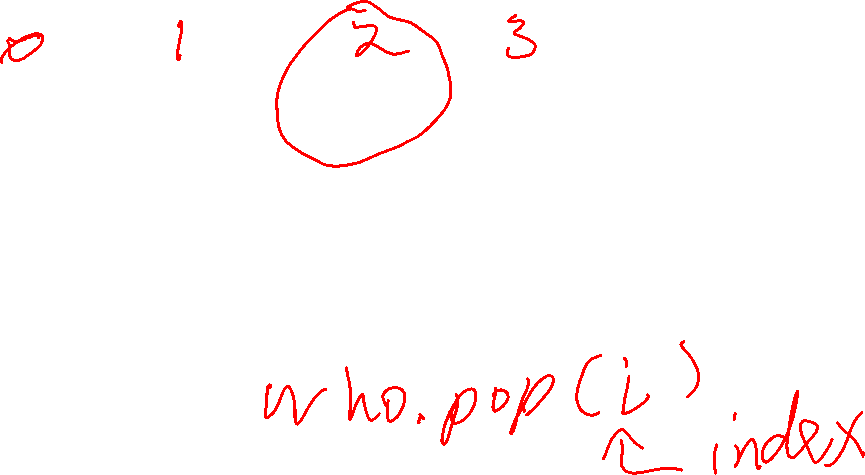 0 1 2 3
who.pop(i)
index